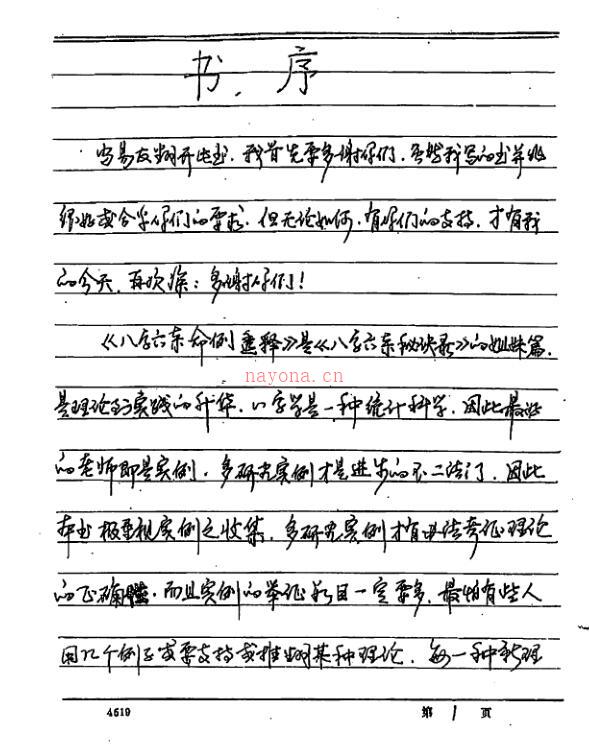 书.序
当易友翻开此书，我首先要多谢你们，虽然我写的书并非
很好或合乎你们的要求，但无论如何，有你们的支持，才有我
的今天，再次说：多谢你们！
《八字六亲命例透释》是《八字六亲秘诀录》的姐妹篇，
nayona.cn
是理论到实践的升华，八字学是一种统计科学，因此最好
的老师即是实例，多研究实例才是进步的不二法门，因此
本书极重视实例之收集，多研究实例才有办法考证理论
的正确性，而且实例的举证数目一定要多，最怕有些人
用几个例子就要支持或推翻某种理论，每一种新理
4519 第 1 页